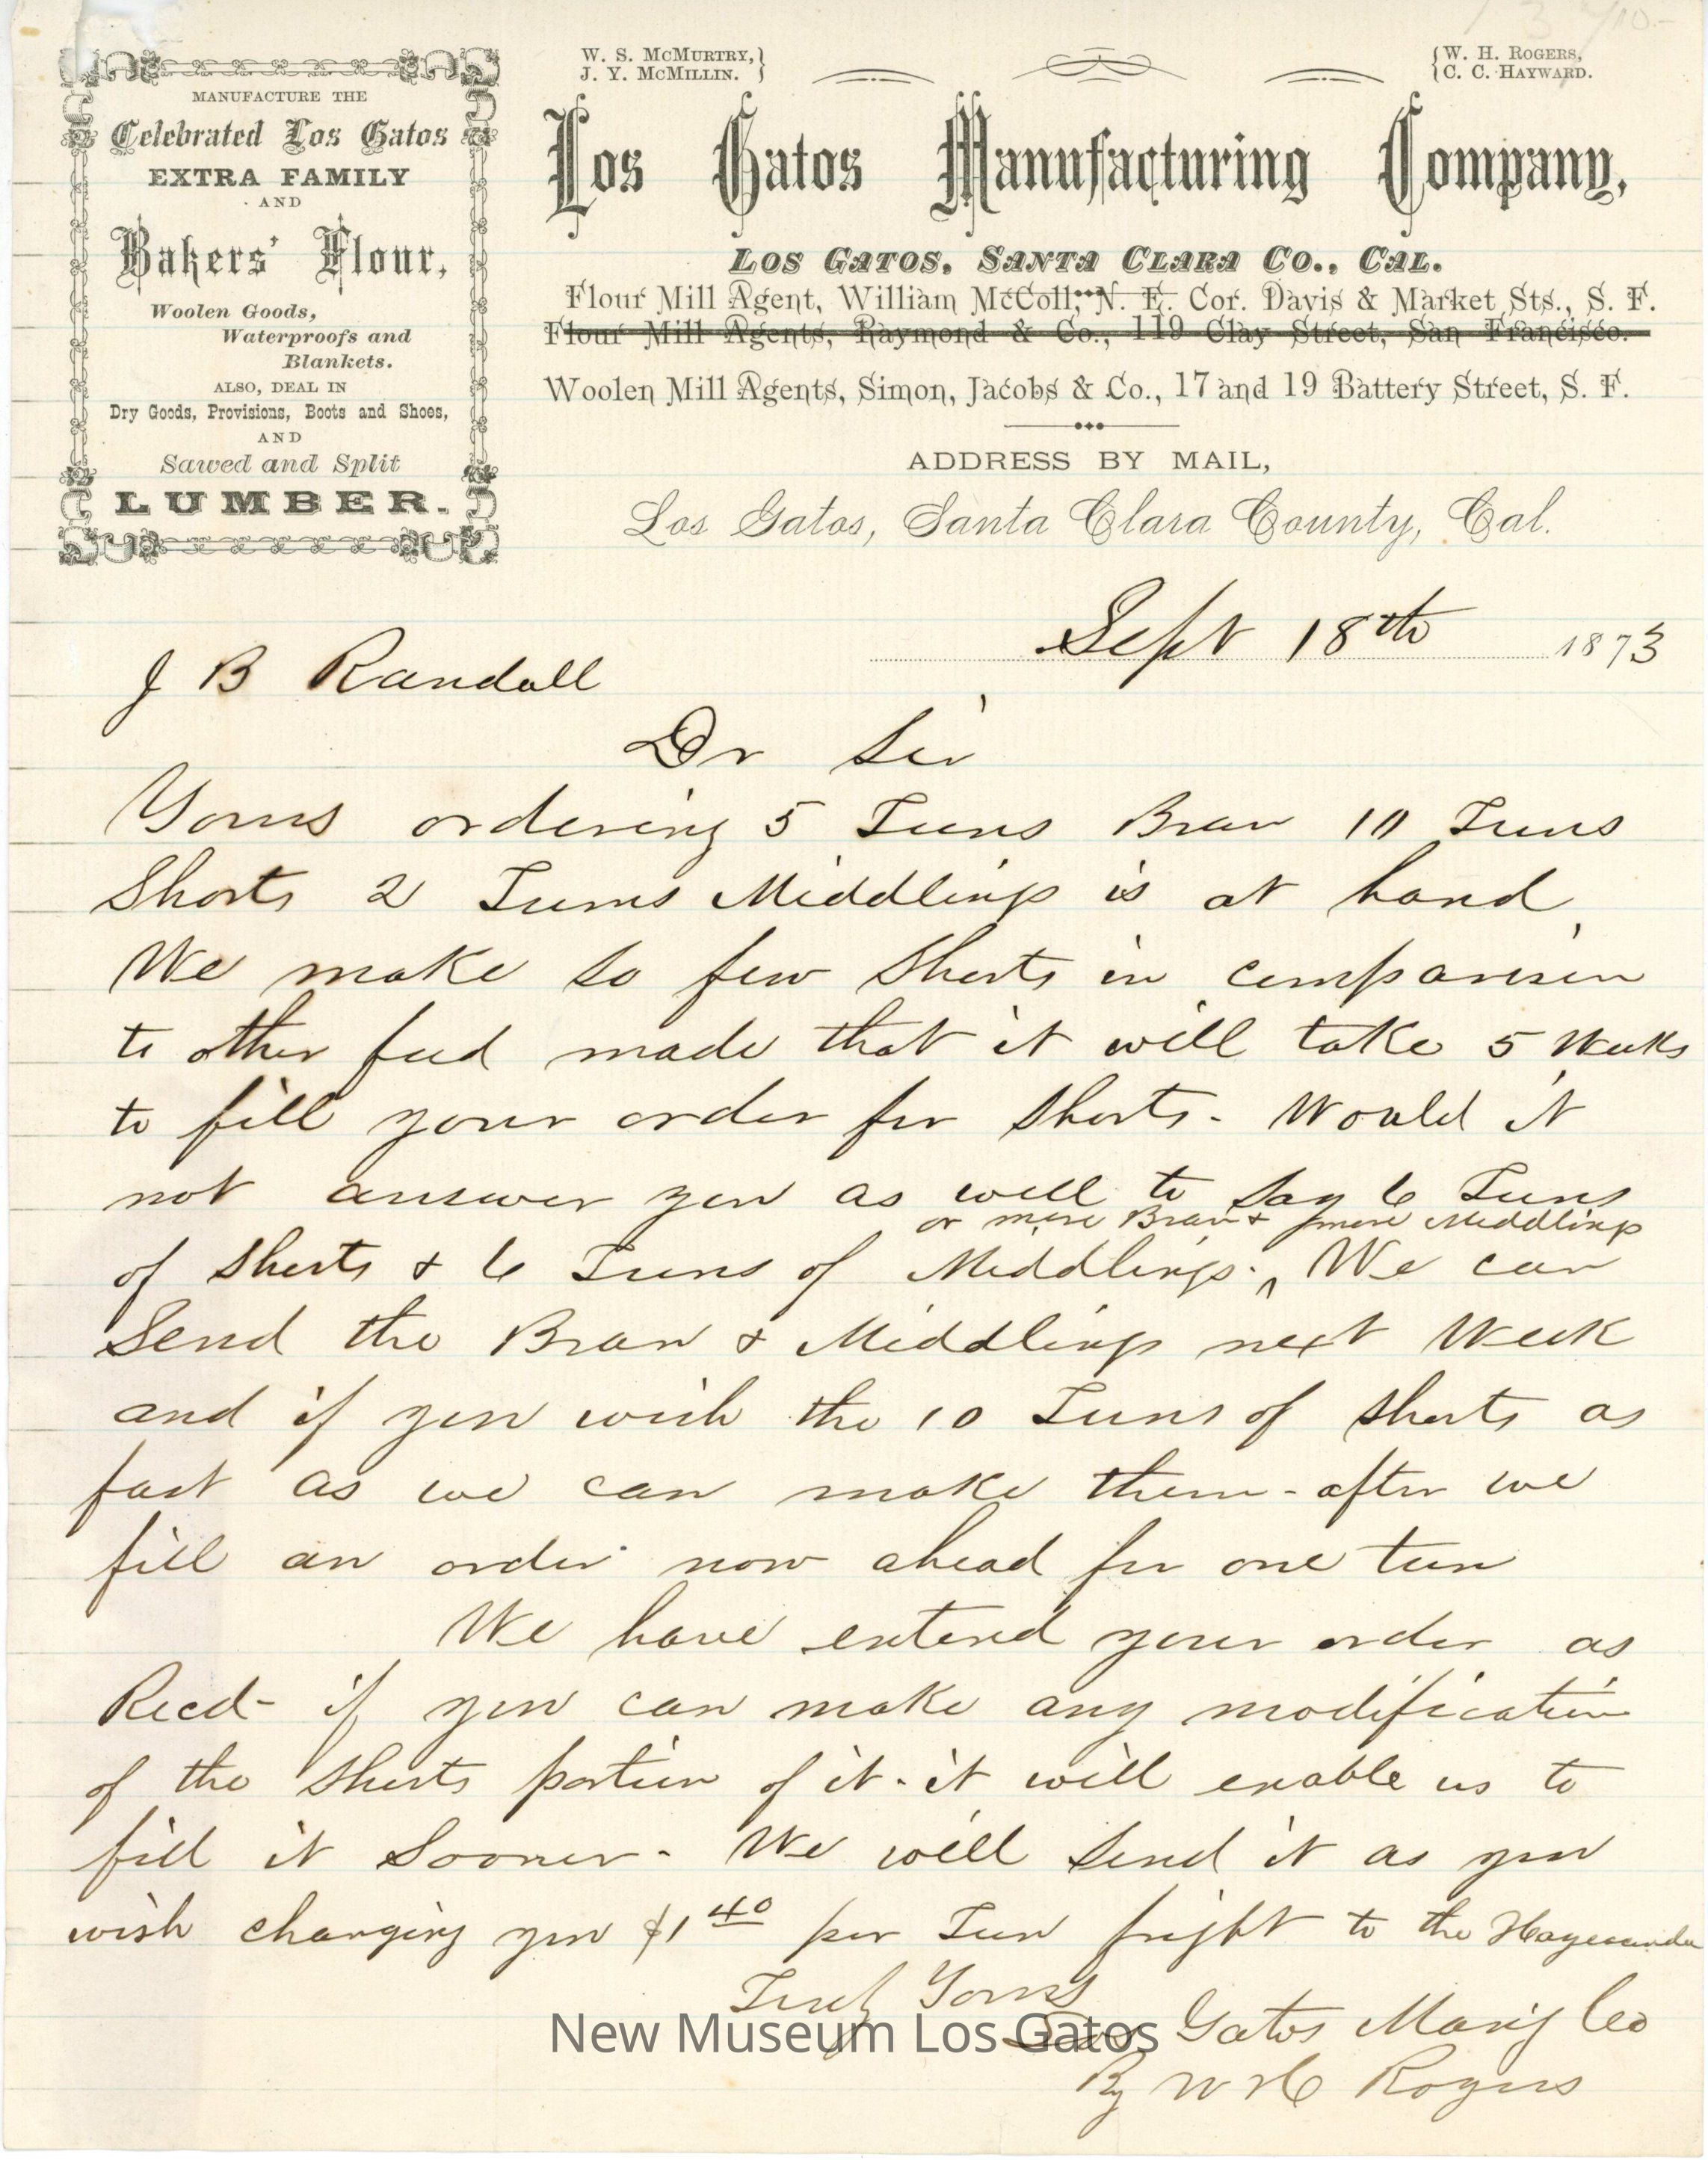 W. S. McMurtry,
J. Y. McMillin.
W. H. Rogers,
C. C. Hayward.
MANUFACTURE THE
Celebrated Los Gatos
EXTRA FAMILY
AND
Bakers' Flour,
Woolen Goods,
Waterproofs and
Blankets.
ALSO, DEAL IN
Dry Goods, Provisions, Boots and Shoes,
AND
Sawed and Split
LUMBER.
Los Gatos Manufacturing Company,
Los Gatos, Santa Clara Co., Cal.
Flour Mill Agent, William McColl, N. E. Cor. Davis & Market Sts., S. F.
Flour Mill Agents, Raymond & Co., 119 Clay Street, San Francisco.
Woolen Mill Agents, Simon, Jacobs & Co., 17 and 19 Battery Street, S. F.
ADDRESS BY MAIL,
Los Gatos, Santa Clara County, Cal.
Sept 18th 1873
J B Randall
Dr Sir
Yours ordering 5 Tuns Bran 10 Tuns
Shorts 2 Tuns Middlings is at hand.
We make so few Shorts in comparison
to other feed made that it will take 5 Weeks
to fill your order for Shorts - Would it
not answer you as well to say 6 Tuns
or more Bran & more Middlings
of Shorts & 6 Tuns of Middlings. We can
Send the Bran & Middlings next Week
and if you wish the 10 Tuns of Shorts as
fast as we can make them - after we
fill an order now ahead for one tun
We have entered your order as
Recd - if you can make any modification
of the Shorts portion of it - it will enable us to
fill it Sooner - We will Send it as you
wish charging you $1 40 per Tun freight to the
Truly Yours
Los Gatos Manfg Co
By W H Rogers
New Museum Los Gatos